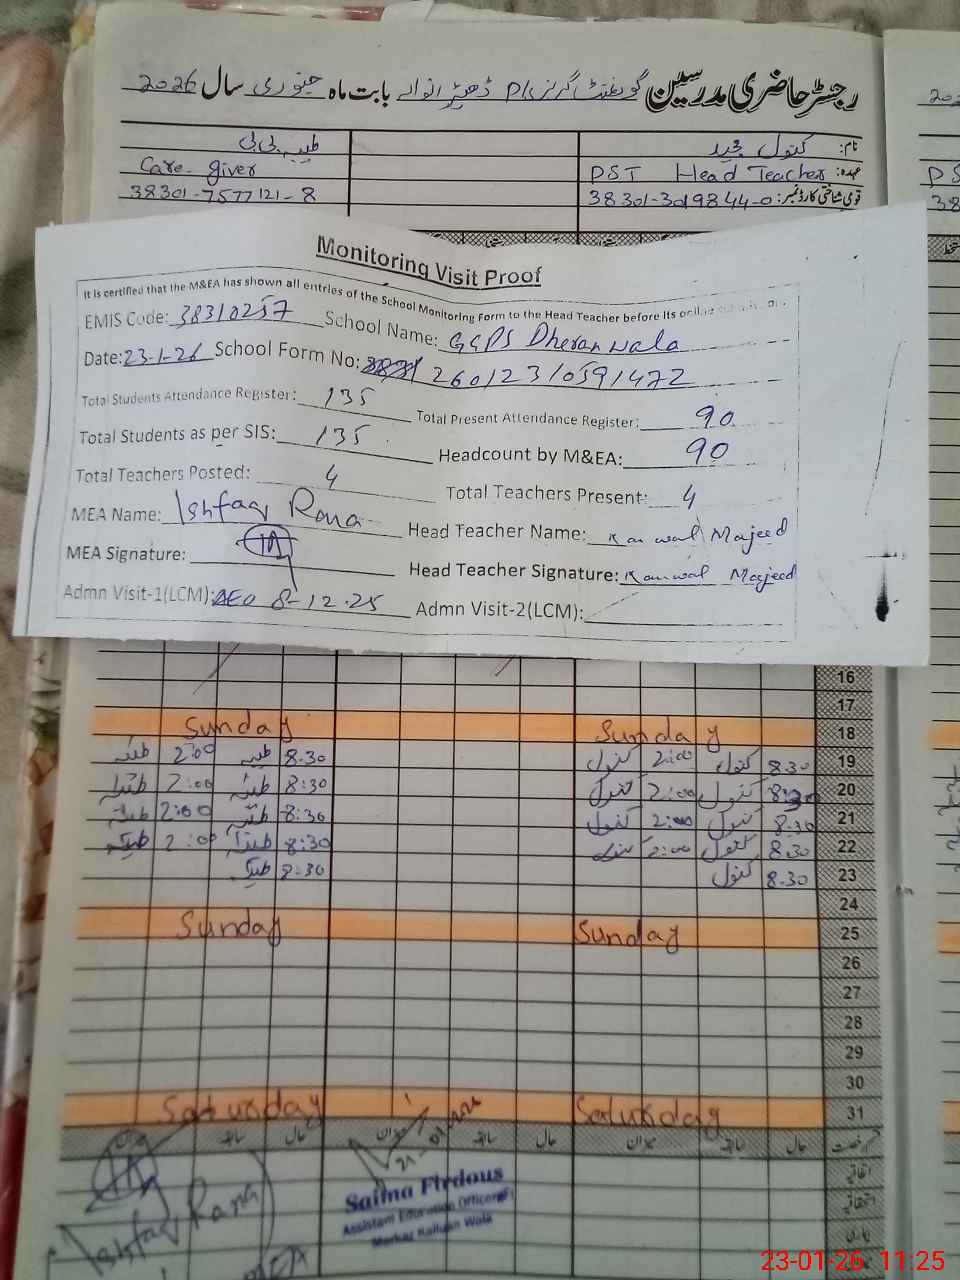 رجسٹر حاضری مدرسین گورنمنٹ گرلز P/S ڈھیرانوالہ بابت ماہ جنوری سال 2026
نام: کنول مجید
طیبہ بی بی
عہدہ: PST Head Teacher
Care giver
قومی شناختی کارڈ نمبر: 38301-3019844-0
38301-7577121-8
Monitoring Visit Proof
It is certified that the M&EA has shown all entries of the School Monitoring Form to the Head Teacher before its online
EMIS Code: 38310257 School Name: GGPS Dheranwala
Date: 23-1-26 School Form No: 26012310591472
Total Students Attendance Register: 135 Total Present Attendance Register: 90
Total Students as per SIS: 135 Headcount by M&EA: 90
Total Teachers Posted: 4 Total Teachers Present: 4
MEA Name: Ishfaq Rana Head Teacher Name: Kanwal Majeed
MEA Signature: Head Teacher Signature: Kanwal Majeed
Admn Visit-1(LCM): AEO 8-12-25 Admn Visit-2(LCM):
16
17
Sunday Sunday 18
طیبہ 2:00 طیبہ 8:30 کنول 2:00 کنول 8:30 19
طیبہ 2:00 طیبہ 8:30 کنول 2:00 کنول 8:30 20
طیبہ 2:00 طیبہ 8:30 کنول 2:00 کنول 8:30 21
طیبہ 2:00 طیبہ 8:30 کنول 2:00 کنول 8:30 22
طیبہ 8:30 کنول 8:30 23
24
Sunday Sunday 25
26
27
28
29
30
Saturday Saturday 31
میزان سابقہ حال میزان سابقہ حال میزان سابقہ حال
Saima Firdous
Assistant Education Officer
Markaz Kalluan Wala
Ishfaq Rana
MEA
23-01-26 11:25